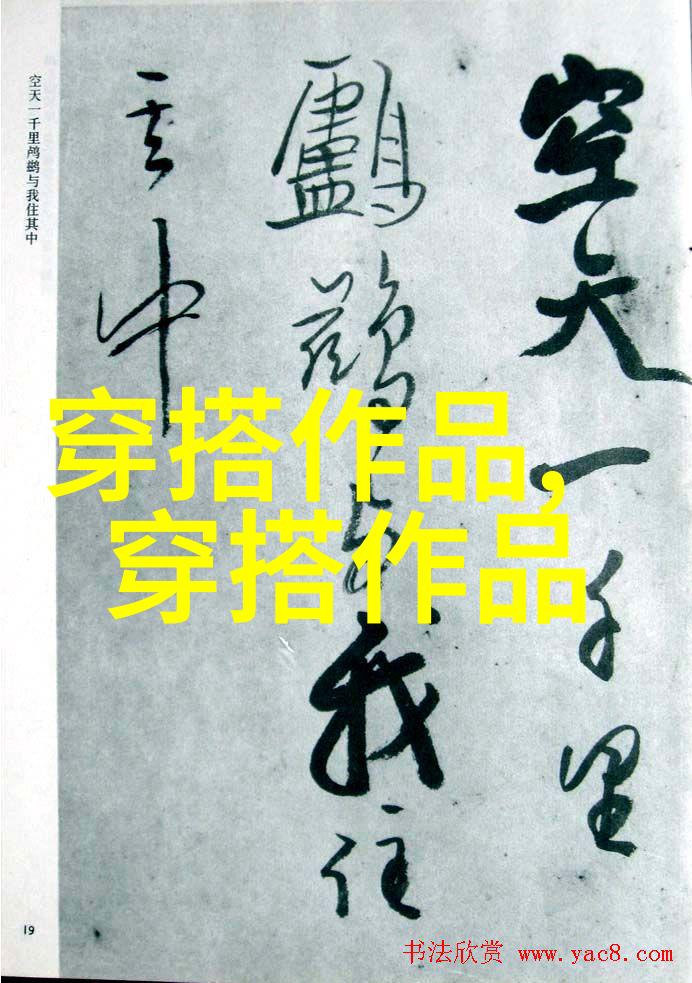 空天一千里
鸕鷀与我住
其中
空天一千里鸬鹚与我住其中
穿搭作品,
穿搭作品
19
书法欣赏 www.yac8.com